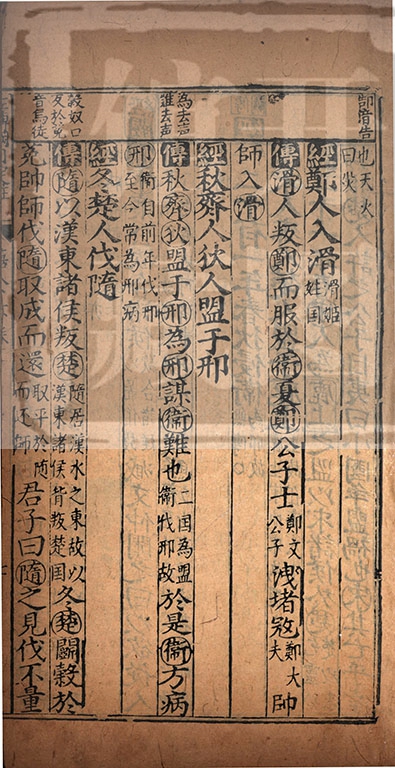 也天火
曰灾
經鄭人入滑滑姬姓国
傳滑人叛鄭而服於衛夏鄭公子士鄭文公子洩堵寇鄭大夫帥
師入滑
經秋齊人狄人盟于邢
為去声
難去声
傳秋齊狄盟于邢為邢謀衛難也二国為盟衛伐邢故於是衛方病
邢衛自前年伐邢至今常為邢病
經冬楚人伐隨
穀奴口
反於菟
音烏徒
傳隨以漢東諸侯叛楚隨居漢水之東故以漢東諸侯背叛楚国冬楚鬬穀於
菟帥師伐隨取成而還取平於随而还師君子曰隨之見伐不量